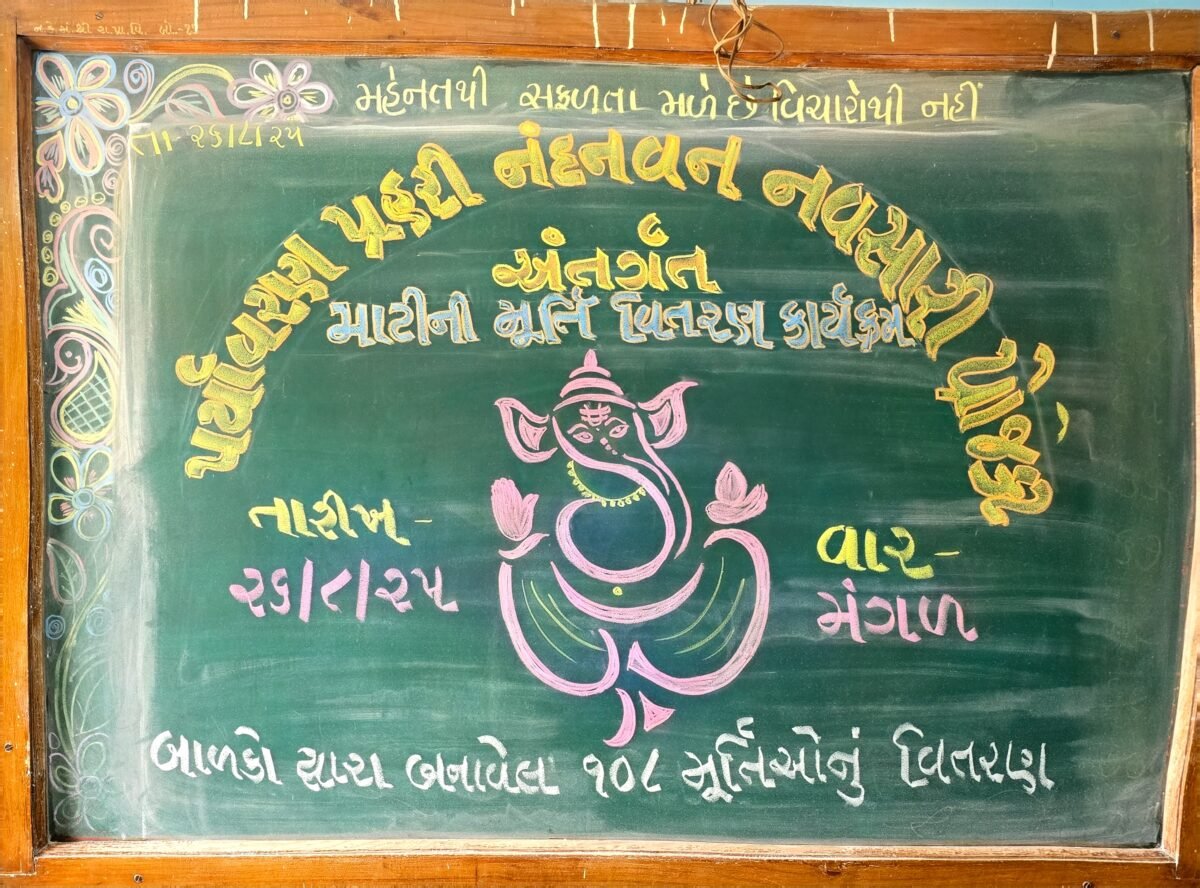 મહેનતથી સફળતા મળે છે વિચારોથી નહીં
તા-૨૬/૮/૨૫
પર્યાવરણ પ્રહરી નંદનવન નવસારી પ્રોજેક્ટ
અંતર્ગત
માટીની મૂર્તિ વિતરણ કાર્યક્રમ
તારીખ -
૨૬/૮/૨૫
વાર -
મંગળ
બાળકો દ્વારા બનાવેલ ૧૦૮ મૂર્તિઓનું વિતરણ